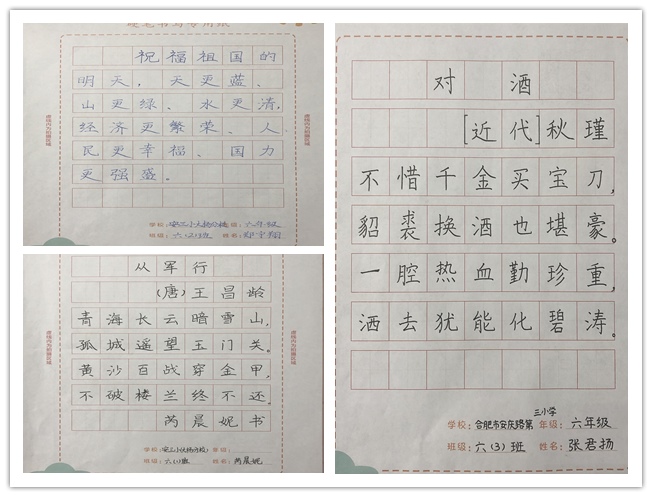 硬笔书写专用纸
祝福祖国的
明天，天更蓝、
山更绿、水更清，
经济更繁荣、人
民更幸福、国力
更强盛。
学校： 年级：六年级
班级：六(2)班 姓名：
从军行
(唐)王昌龄
青海长云暗雪山，
孤城遥望玉门关。
黄沙百战穿金甲，
不破楼兰终不还。
芮晨妮书
学校： 年级：
班级：六(1)班 姓名：芮晨妮
对酒
[近代]秋瑾
不惜千金买宝刀，
貂裘换酒也堪豪。
一腔热血勤珍重，
洒去犹能化碧涛。
学校：合肥市安庆路第三小学 年级：六年级
班级：六(3)班 姓名：张君扬